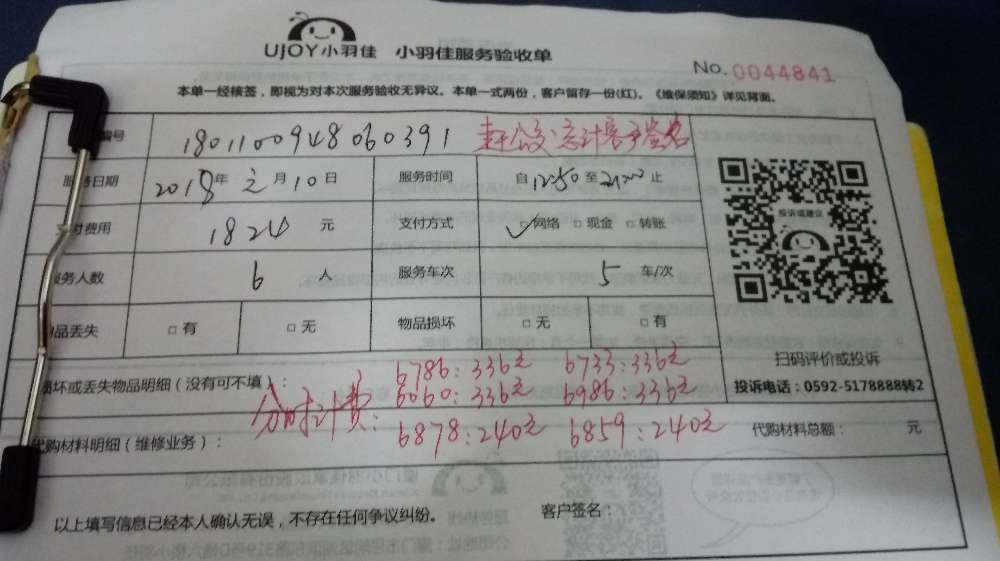 UJOY小羽佳 小羽佳服务验收单
No.0044841
本单一经核签，即视为对本次服务验收无异议。本单一式两份，客户留存一份(红)。《维保须知》详见背面。
编号 180110094806039​1 忘计客户签名
服务日期 2018年 元月10日 服务时间 自12:50至21:00止
付费用 1824 元 支付方式 □网络 □现金 □转账
服务人数 6 人 服务车次 5 车/次
物品丢失 □有 □无 物品损坏 □无 □有
投诉或建议
扫码评价或投诉
投诉电话：0592-5178888转2
损坏或丢失物品明细（没有可不填）：
6786:336元 6733:336元
分时计费： 6060:336元 6986:336元
6878:240元 6859:240元
代购材料明细（维修业务）： 代购材料总额： 元
以上填写信息已经本人确认无误，不存在任何争议纠纷。 客户签名：